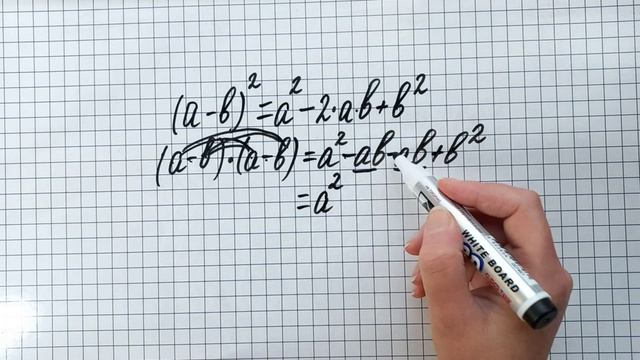 (a-b)²=a²-2·a·b+b²
(a-b)·(a-b)=a²-ab-ab+b²
=a²
WHITE BOARD